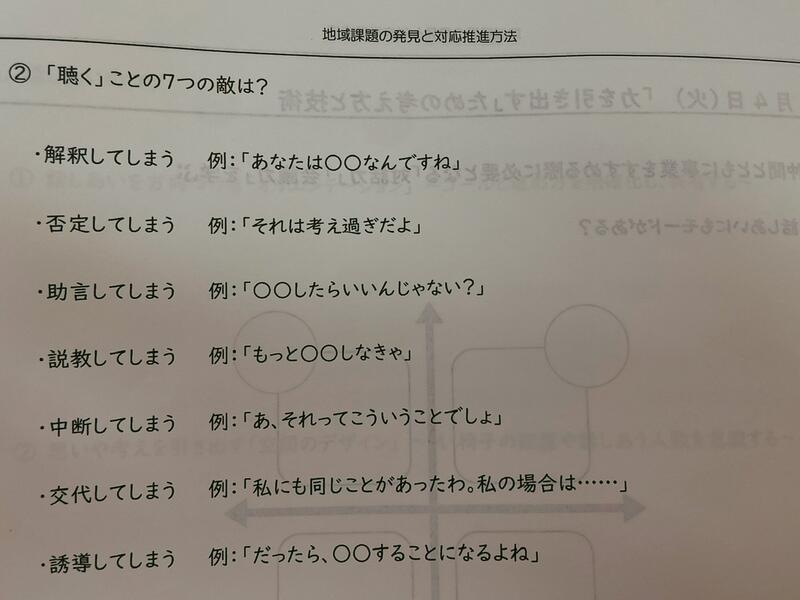 地域課題の発見と対応推進方法
② 「聴く」ことの7つの敵は?
・解釈してしまう 例:「あなたは〇〇なんですね」
・否定してしまう 例:「それは考え過ぎだよ」
・助言してしまう 例:「〇〇したらいいんじゃない?」
・説教してしまう 例:「もっと〇〇しなきゃ」
・中断してしまう 例:「あ、それってこういうことでしょ」
・交代してしまう 例:「私にも同じことがあったわ。私の場合は……」
・誘導してしまう 例:「だったら、〇〇することになるよね」